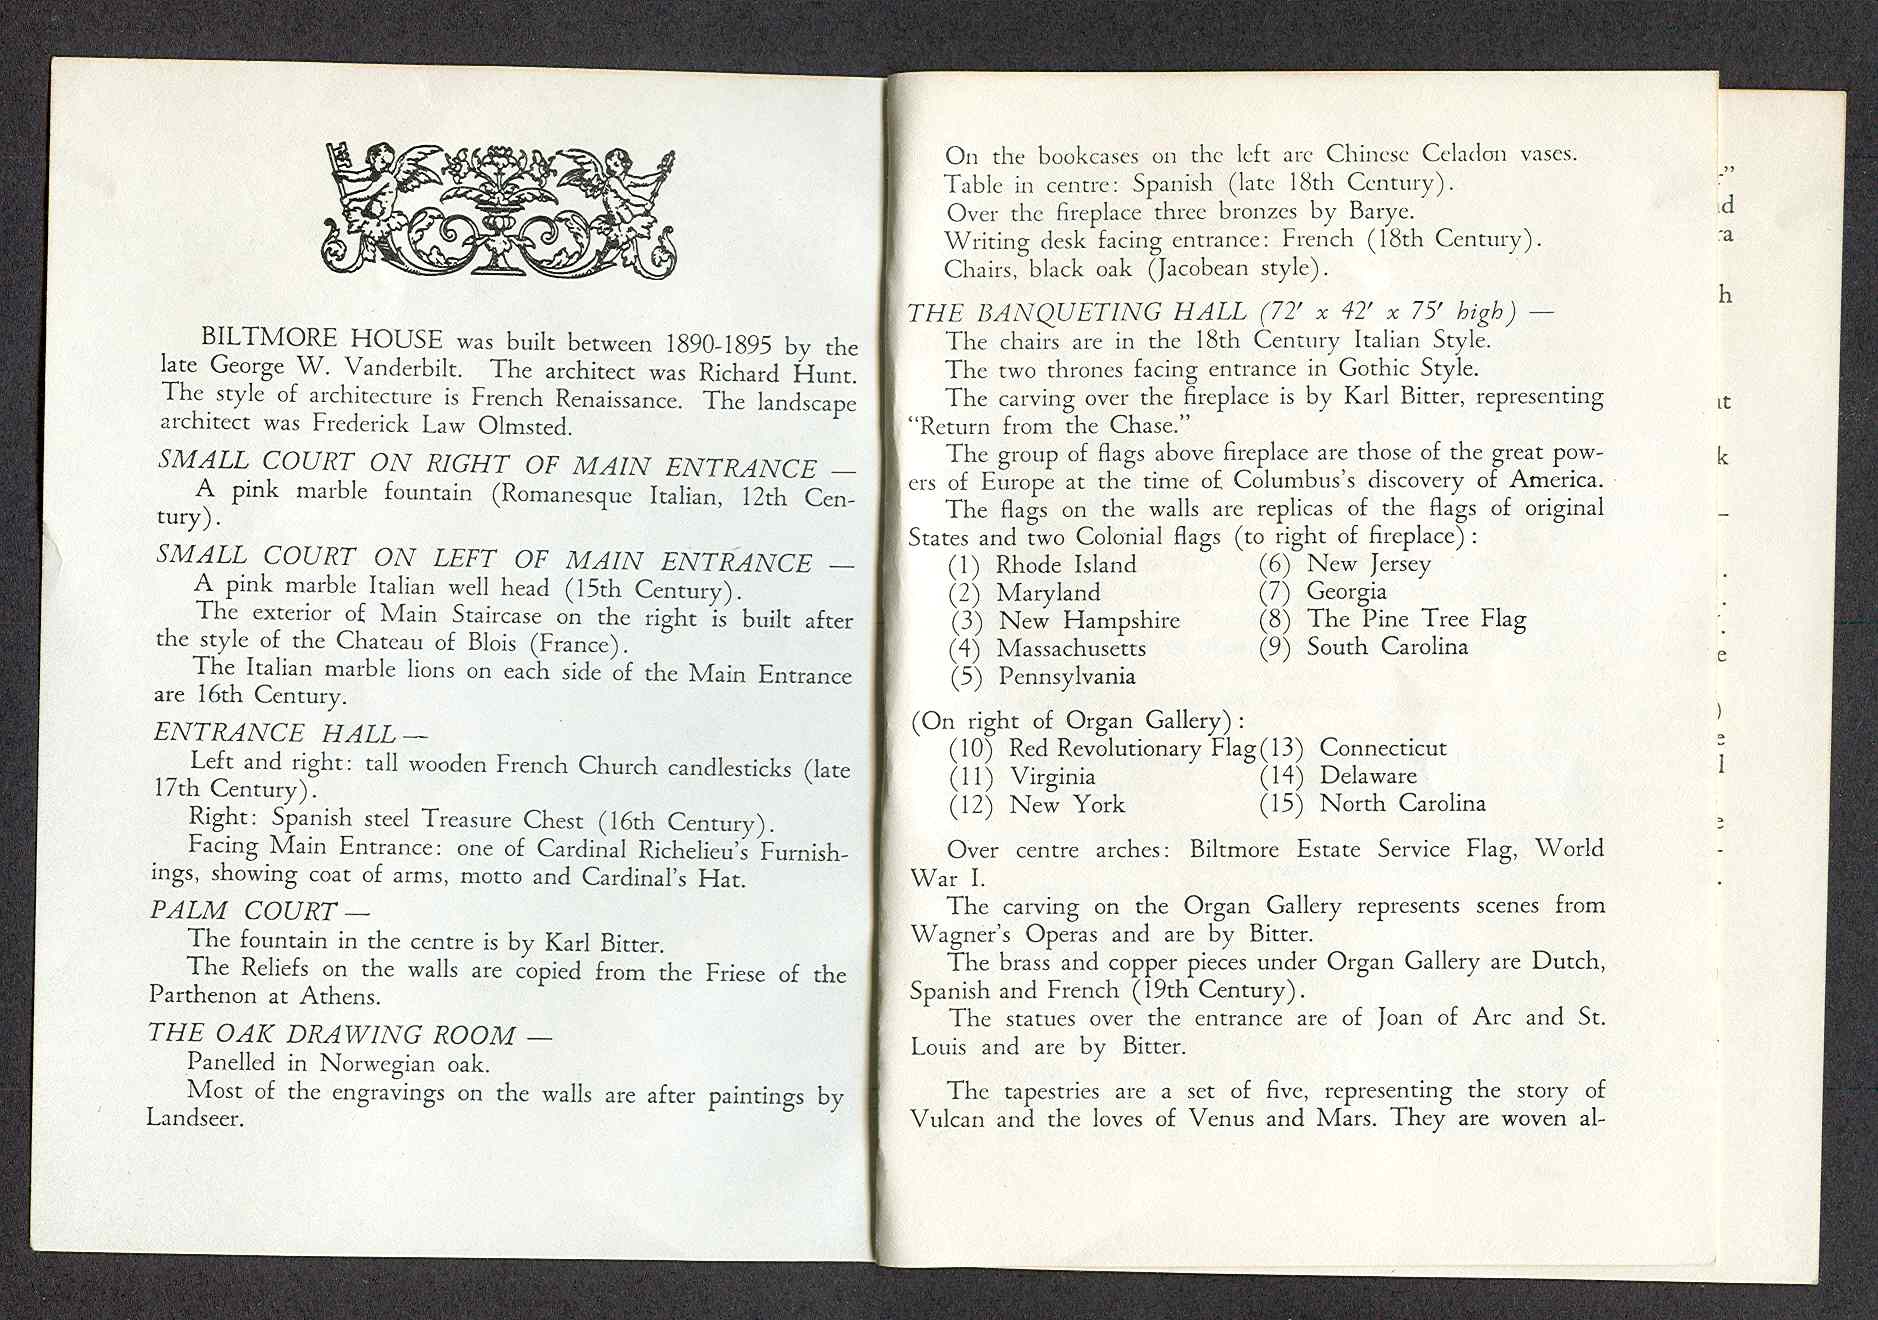 BILTMORE HOUSE was built between 1890-1895 by the
late George W. Vanderbilt. The architect was Richard Hunt.
The style of architecture is French Renaissance. The landscape
architect was Frederick Law Olmsted.
SMALL COURT ON RIGHT OF MAIN ENTRANCE —
A pink marble fountain (Romanesque Italian, 12th Cen-
tury).
SMALL COURT ON LEFT OF MAIN ENTRANCE —
A pink marble Italian well head (15th Century).
The exterior of Main Staircase on the right is built after
the style of the Chateau of Blois (France).
The Italian marble lions on each side of the Main Entrance
are 16th Century.
ENTRANCE HALL —
Left and right: tall wooden French Church candlesticks (late
17th Century).
Right: Spanish steel Treasure Chest (16th Century).
Facing Main Entrance: one of Cardinal Richelieu's Furnish-
ings, showing coat of arms, motto and Cardinal's Hat.
PALM COURT —
The fountain in the centre is by Karl Bitter.
The Reliefs on the walls are copied from the Friese of the
Parthenon at Athens.
THE OAK DRAWING ROOM —
Panelled in Norwegian oak.
Most of the engravings on the walls are after paintings by
Landseer.
On the bookcases on the left are Chinese Celadon vases.
Table in centre: Spanish (late 18th Century).
Over the fireplace three bronzes by Barye.
Writing desk facing entrance: French (18th Century).
Chairs, black oak (Jacobean style).
THE BANQUETING HALL (72' x 42' x 75' high) —
The chairs are in the 18th Century Italian Style.
The two thrones facing entrance in Gothic Style.
The carving over the fireplace is by Karl Bitter, representing
"Return from the Chase."
The group of flags above fireplace are those of the great pow-
ers of Europe at the time of Columbus's discovery of America.
The flags on the walls are replicas of the flags of original
States and two Colonial flags (to right of fireplace):
(1) Rhode Island (6) New Jersey
(2) Maryland (7) Georgia
(3) New Hampshire (8) The Pine Tree Flag
(4) Massachusetts (9) South Carolina
(5) Pennsylvania
(On right of Organ Gallery):
(10) Red Revolutionary Flag (13) Connecticut
(11) Virginia (14) Delaware
(12) New York (15) North Carolina
Over centre arches: Biltmore Estate Service Flag, World
War I.
The carving on the Organ Gallery represents scenes from
Wagner's Operas and are by Bitter.
The brass and copper pieces under Organ Gallery are Dutch,
Spanish and French (19th Century).
The statues over the entrance are of Joan of Arc and St.
Louis and are by Bitter.
The tapestries are a set of five, representing the story of
Vulcan and the loves of Venus and Mars. They are woven al-